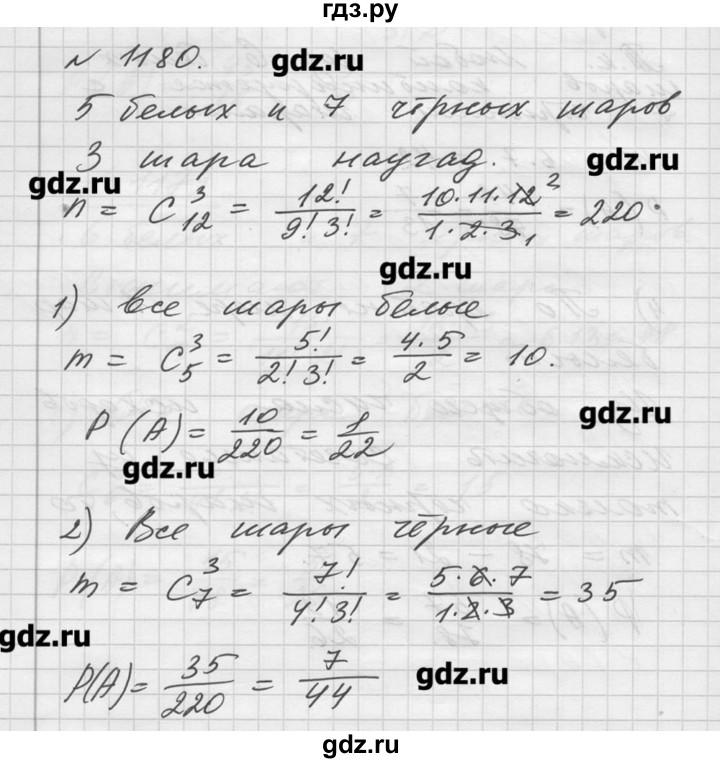 гдз.ру
№ 1180.
gdz.ru
5 белых и 7 чёрных шаров
3 шара наугад.
gdz.ru
gdz.ru
n = C₁₂³ = 12!/(9! 3!) = (10·11·12²)/(1·2·3₁) = 220.
gdz.ru
1) все шары белые
m = C₅³ = 5!/(2! 3!) = (4·5)/2 = 10.
gdz.ru
P(A) = 10/220 = 1/22
gdz.ru
2) Все шары чёрные
m = C₇³ = 7!/(4! 3!) = (5·6·7)/(1·2·3) = 35
gdz.ru
P(A) = 35/220 = 7/44
gdz.ru
gdz.ru